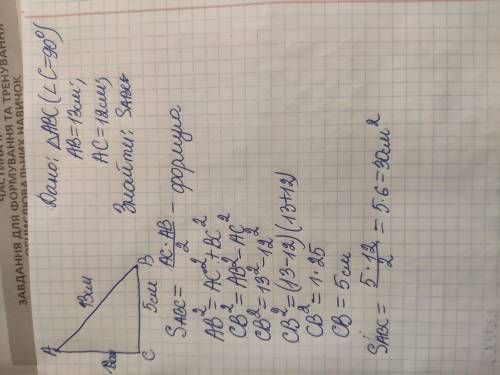 ЧАСТИНА
ЗАВДАННЯ ДЛЯ ФОРМУВАННЯ ТА ТРЕНУВАННЯ
ОБЧИСЛЮВАЛЬНИХ НАВИЧОК
Дано: △ABC (∠C=90°)
AB=13см;
AC=12см;
Знайти: SABC
A
13см
12см
C
5см
B
SABC = AC·AB/2 - формула
AB²=AC²+BC²
CB²=AB²-AC²
CB²=13²-12²
CB²=(13-12)(13+12)
CB²=1·25
CB=5см
SABC = 5·12/2 = 5·6=30см²